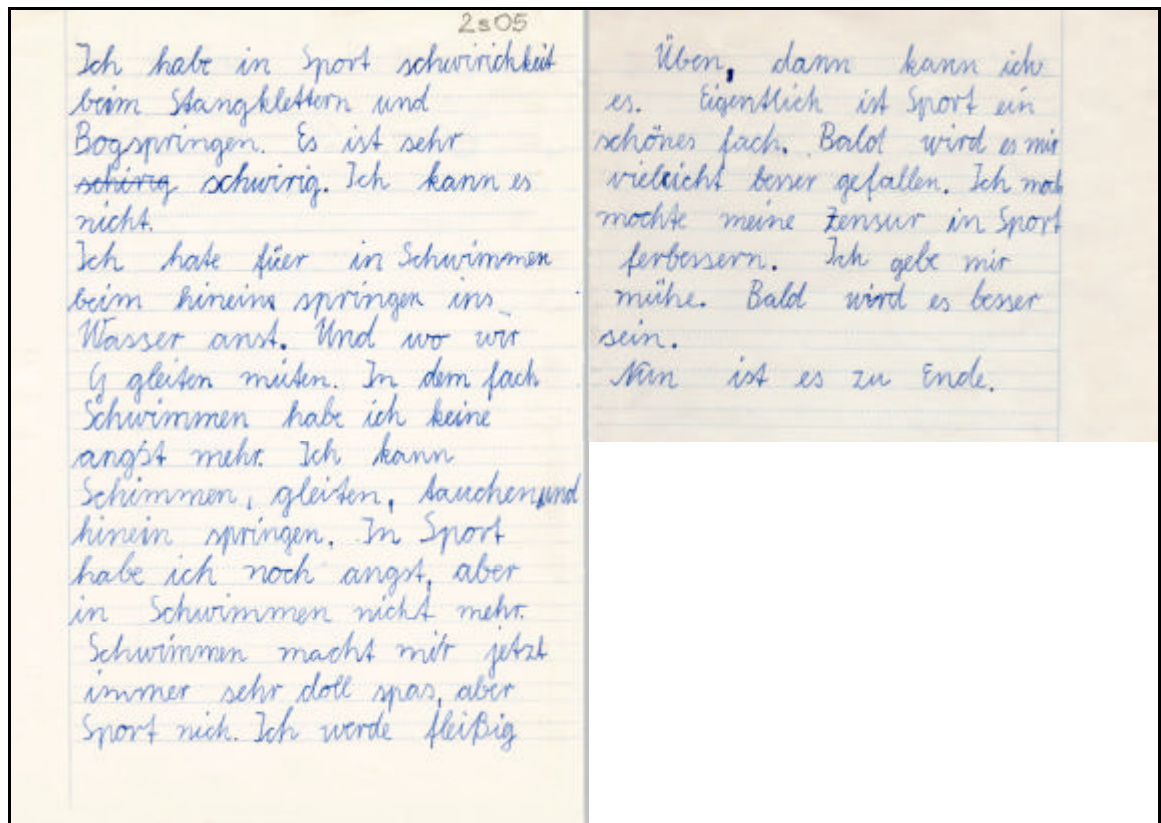 2s05
Ich habe in Sport schwirichkeit
beim Stangklettern und
Bogspringen. Es ist sehr
schirig schwirig. Ich kann es
nicht.
Ich hate füer in Schwimmen
beim hineins springen ins
Wasser anst. Und wo wir
G gleiten müten. In dem fach
Schwimmen habe ich keine
angst mehr. Ich kann
Schimmen, gleiten, tauchen, und
hinein springen. In Sport
habe ich noch angst, aber
in Schwimmen nicht mehr.
Schwimmen macht mir jetzt
immer sehr doll spas, aber
Sport nich. Ich werde fleißig
Üben, dann kann ich
es. Eigentlich ist Sport ein
schönes fach. Bald wird es mir
vieleicht besser gefallen. Ich
mochte meine Zensur in Sport
ferbessern. Ich gebe mir
mühe. Bald wird es besser
sein.
Nun ist es zu Ende.